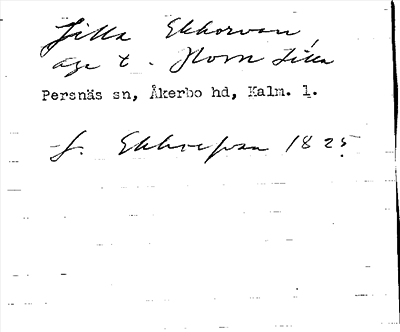 Lilla Ekkorvan,
äga t. Horn Lilla
Persnäs sn, Åkerbo hd, Kalm. l.
f. Ekkorpan 1825